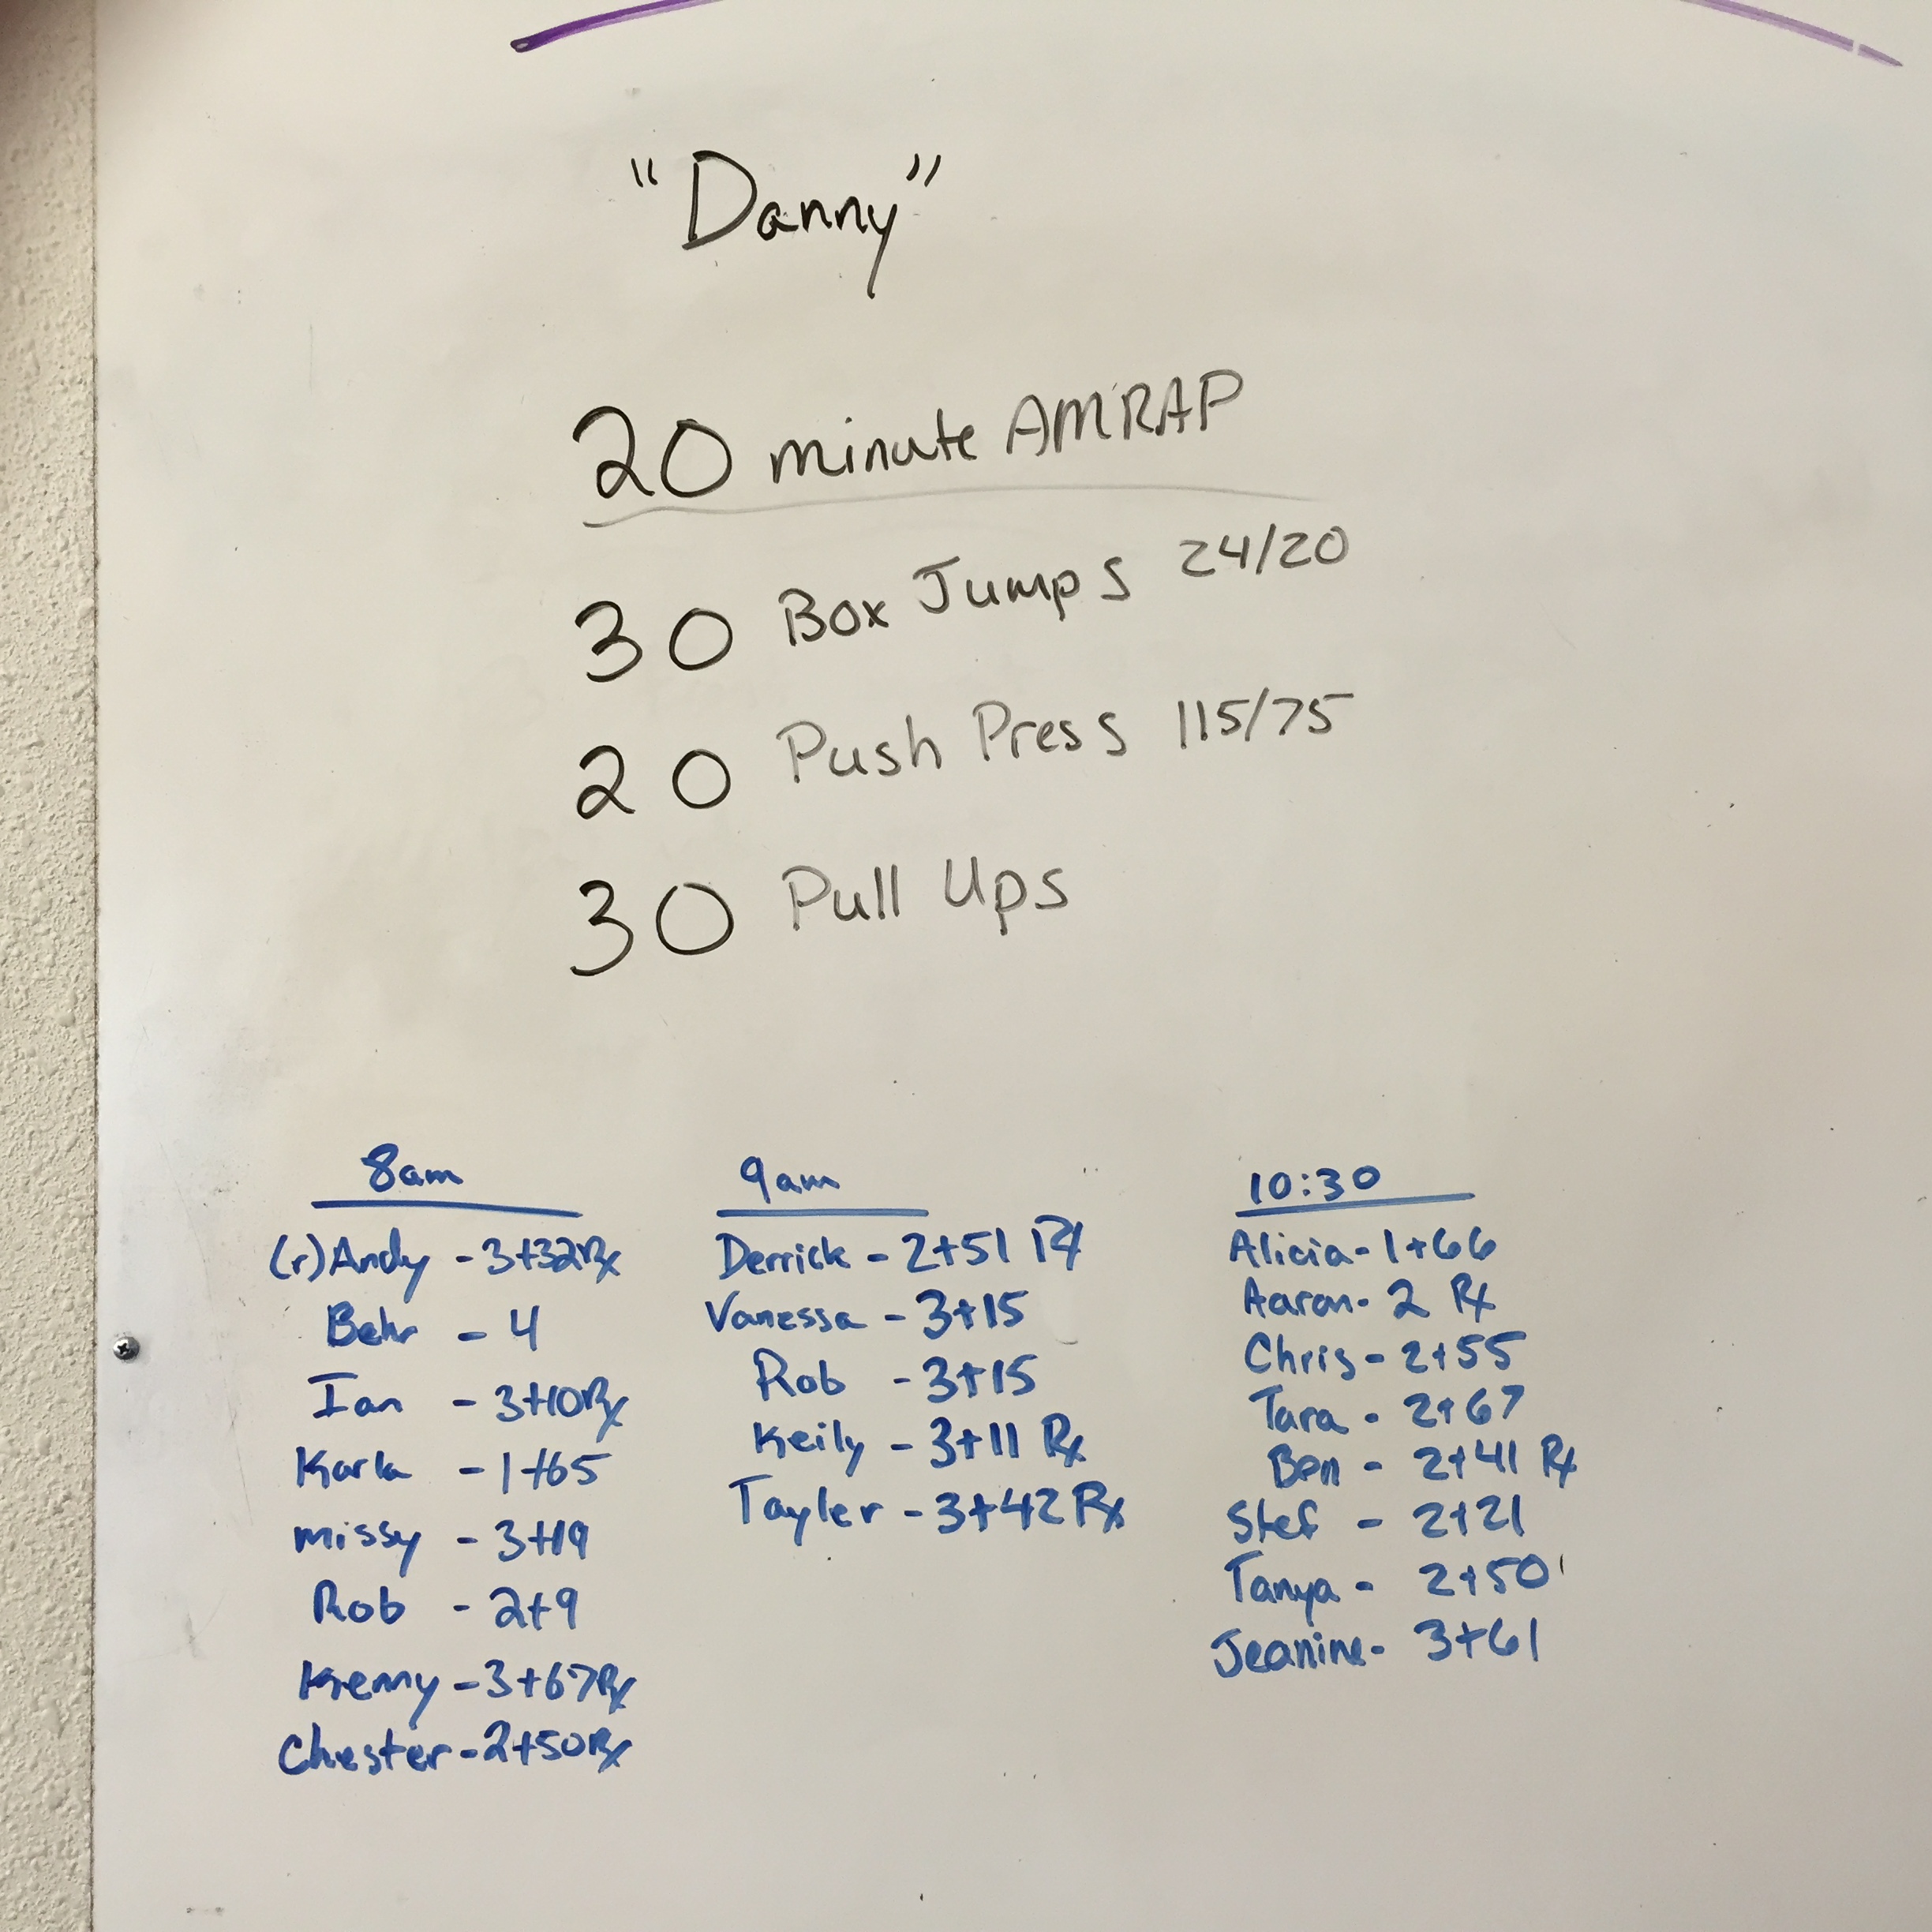 "Danny"
20 minute AMRAP
30 Box Jumps 24/20
20 Push Press 115/75
30 Pull Ups
8am
(r) Andy - 3+32 Rx
Behr - 4
Ian - 3+10 Rx
Karla - 1+65
Missy - 3+19
Rob - 2+9
Kenny - 3+67 Rx
Chester - 2+50 Rx
9am
Derrick - 2+51 Rx
Vanessa - 3+15
Rob - 3+15
Keily - 3+11 Rx
Tayler - 3+42 Rx
10:30
Alicia - 1+66
Aaron - 2 Rx
Chris - 2+55
Tara - 2+67
Ben - 2+41 Rx
Stef - 2+21
Tanya - 2+50
Jeanine - 3+61